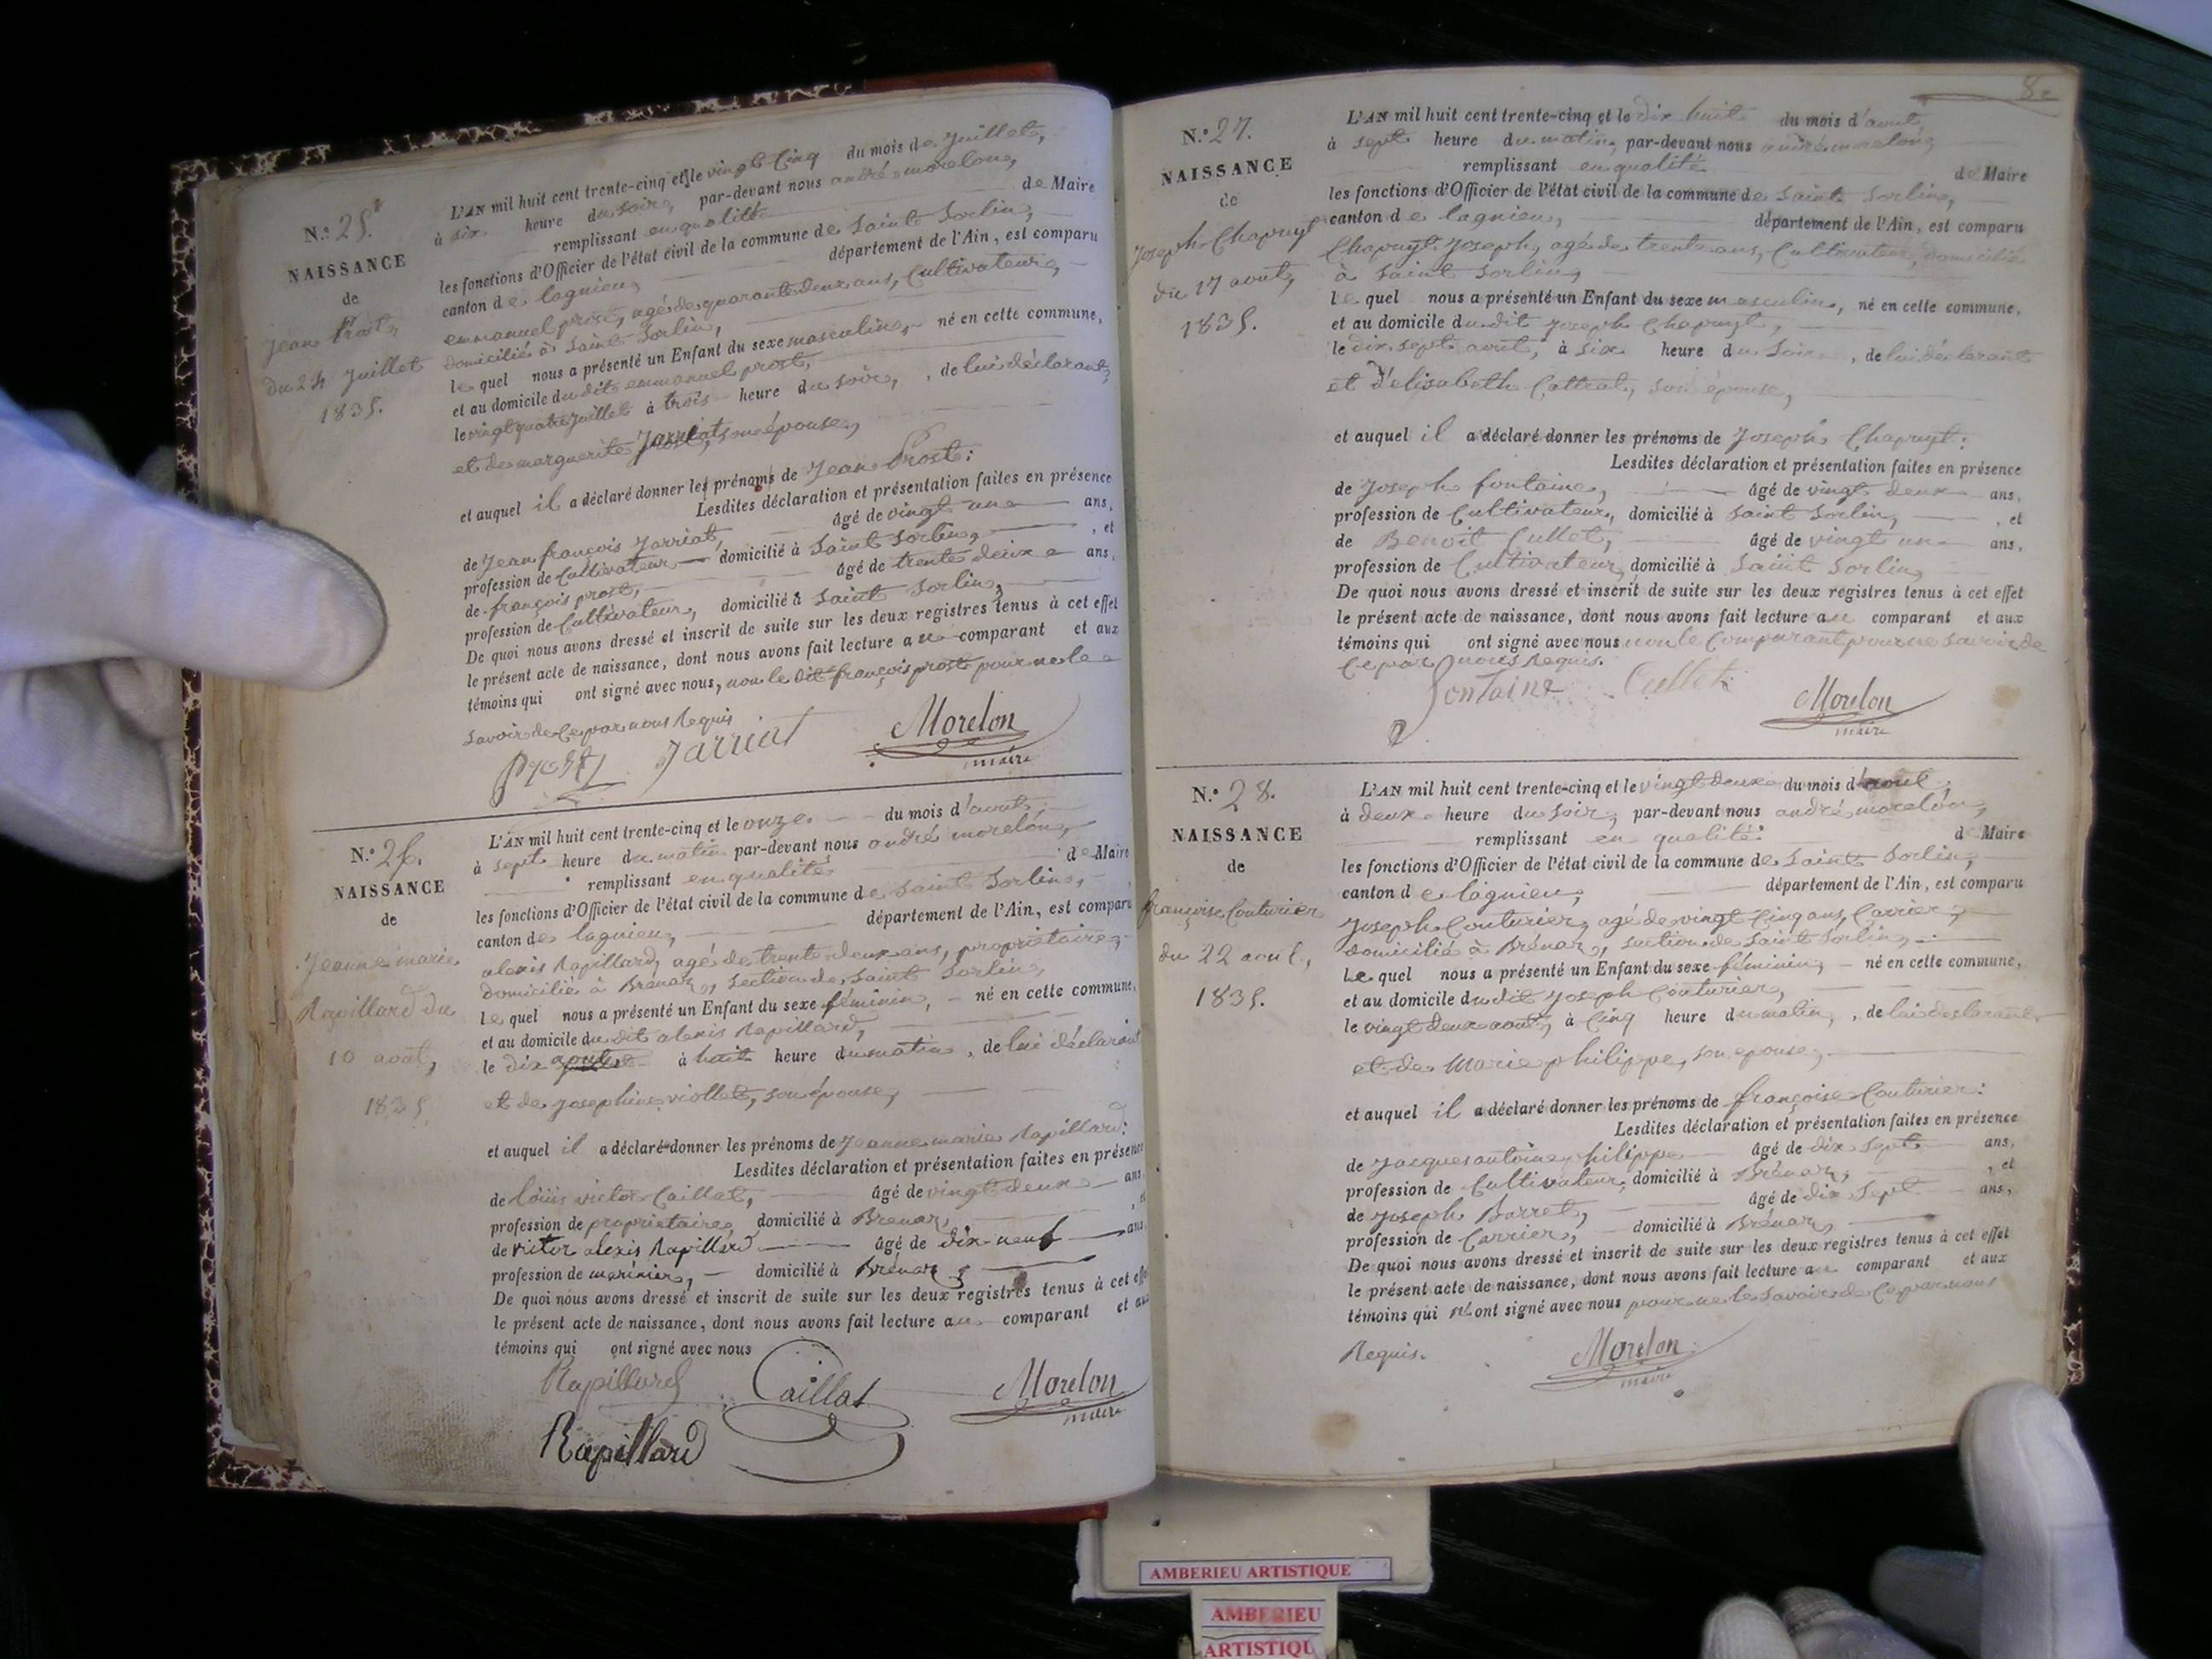 N.º 25.
NAISSANCE
de
Jean Prost,
du 24 Juillet
1835.
L'AN mil huit cent trente-cinq et le vingt Cinq du mois de Juillet,
à six heure du soir, par-devant nous andré morelon,
remplissant en qualité de Maire
les fonctions d'Officier de l'état civil de la commune de Saint Sorlin,
canton de lagnieu, département de l'Ain, est comparu
emmanuel prost, agé de quarante deux ans, Cultivateur,
domicilié à Saint Sorlin,
le quel nous a présenté un Enfant du sexe masculin, né en cette commune,
et au domicile du dit emmanuel prost,
le vingt quatre Juillet à trois heure du soir, , de lui déclarant,
et de marguerite Jarriat, son épouse,
et auquel il a déclaré donner les prénoms de Jean Prost :
Lesdites déclaration et présentation faites en présence
de Jean françois Jarriat, âgé de vingt un ans,
profession de Cultivateur domicilié à Saint Sorlin, , et
de françois prost, âgé de trente deux ans,
profession de Cultivateur, domicilié à Saint Sorlin,
De quoi nous avons dressé et inscrit de suite sur les deux registres tenus à cet effet
le présent acte de naissance, dont nous avons fait lecture au comparant et aux
témoins qui ont signé avec nous, non le dit françois prost pour ne le
savoir de Ce par nous Requis
Prost Jarriat Morelon
maire
N.º 26.
NAISSANCE
de
Jeanne marie
Rapillard du
10 août,
1835
L'AN mil huit cent trente-cinq et le onze du mois d'août,
à sept heure du matin par-devant nous andré morelon,
remplissant en qualité de Maire
les fonctions d'Officier de l'état civil de la commune de Saint Sorlin,
canton de lagnieu, département de l'Ain, est comparu
alexis Rapillard, agé de trente deux ans, propriétaire,
domicilié à Brénaz, section de Saint Sorlin,
le quel nous a présenté un Enfant du sexe féminin, né en cette commune,
et au domicile du dit alexis Rapillard,
le dix août à huit heure du matin , de lui déclarant
et de Josephine viollet, son épouse,
et auquel il a déclaré donner les prénoms de Jeanne marie Rapillard :
Lesdites déclaration et présentation faites en présence
de louis victor Caillat, âgé de vingt deux ans,
profession de propriétaire, domicilié à Brenaz, , et
de victor alexis Rapillard âgé de dix-neuf ans,
profession de marinier, domicilié à Brénaz,
De quoi nous avons dressé et inscrit de suite sur les deux registres tenus à cet effet
le présent acte de naissance, dont nous avons fait lecture au comparant et aux
témoins qui ont signé avec nous
Rapillard Caillat Morelon
maire
Rapillard
8
N.º 27.
NAISSANCE
de
Joseph Chapuyt
du 17 aout,
1835.
L'AN mil huit cent trente-cinq et le dix huit du mois d'août
à sept heure du matin, par-devant nous andré morelon,
remplissant en qualité de Maire
les fonctions d'Officier de l'état civil de la commune de Saint Sorlin,
canton de lagnieu, département de l'Ain, est comparu
Chapuyt Joseph, agé de trente ans, Cultivateur, domicilié
à Saint Sorlin,
le quel nous a présenté un Enfant du sexe masculin, né en cette commune,
et au domicile du dit Joseph Chapuyt,
le dix sept août, à six heure du Soir , de lui déclarant
et d'elisabeth Cottrat, son épouse,
et auquel il a déclaré donner les prénoms de Joseph Chapuyt :
Lesdites déclaration et présentation faites en présence
de Joseph fontaine, âgé de vingt deux ans,
profession de Cultivateur, domicilié à Saint Sorlin, , et
de Benoit Cullet, âgé de vingt un ans,
profession de Cultivateur, domicilié à Saint Sorlin,
De quoi nous avons dressé et inscrit de suite sur les deux registres tenus à cet effet
le présent acte de naissance, dont nous avons fait lecture au comparant et aux
témoins qui ont signé avec nous non le Comparant pour ne savoir de
Ce par nous Requis.
Fontaine Cullet Morelon
maire
N.º 28.
NAISSANCE
de
françoise Couturier
du 22 aout,
1835.
L'AN mil huit cent trente-cinq et le vingt deux du mois d'aout
à deux heure du soir, par-devant nous andré morelon,
remplissant en qualité de Maire
les fonctions d'Officier de l'état civil de la commune de Saint Sorlin,
canton de lagnieu, département de l'Ain, est comparu
Joseph Couturier, agé de vingt Cinq ans, Carrier,
domicilié à Brénaz, section de Saint Sorlin,
Le quel nous a présenté un Enfant du sexe féminin, né en cette commune,
et au domicile du dit Joseph Couturier,
le vingt deux aout, à Cinq heure du matin, , de lui déclarant
et de Marie philippe, son epouse,
et auquel il a déclaré donner les prénoms de françoise Couturier :
Lesdites déclaration et présentation faites en présence
de Jacques antoine philippe âgé de dix sept ans,
profession de Cultivateur, domicilié à Brénaz, , et
de Joseph Barret, âgé de dix sept ans,
profession de Carrier, domicilié à Brénaz,
De quoi nous avons dressé et inscrit de suite sur les deux registres tenus à cet effet
le présent acte de naissance, dont nous avons fait lecture au comparant et aux
témoins qui n'ont signé avec nous pour ne le savoir de Ce par nous
Requis. Morelon
maire
AMBERIEU ARTISTIQUE
AMBERIEU
ARTISTIQU